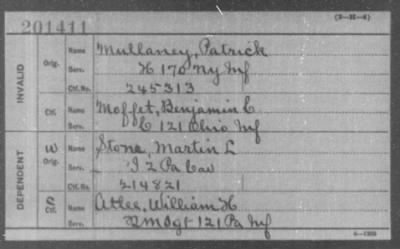 201411
(3-21-4)
INVALID
Orig.
Name Mullaney, Patrick
Serv. H 170 Ny Inf
Ctf. No. 245313
Ctf.
Name Moffet, Benjamin C
Serv. C 121 Ohio Inf
DEPENDENT
W
Orig.
Name Stone, Martin L
Serv. I 2 Pa Cav
Ctf. No. 214821
Ctf.
Name Atlee, William H
Serv. QM Sgt 121 Pa Inf